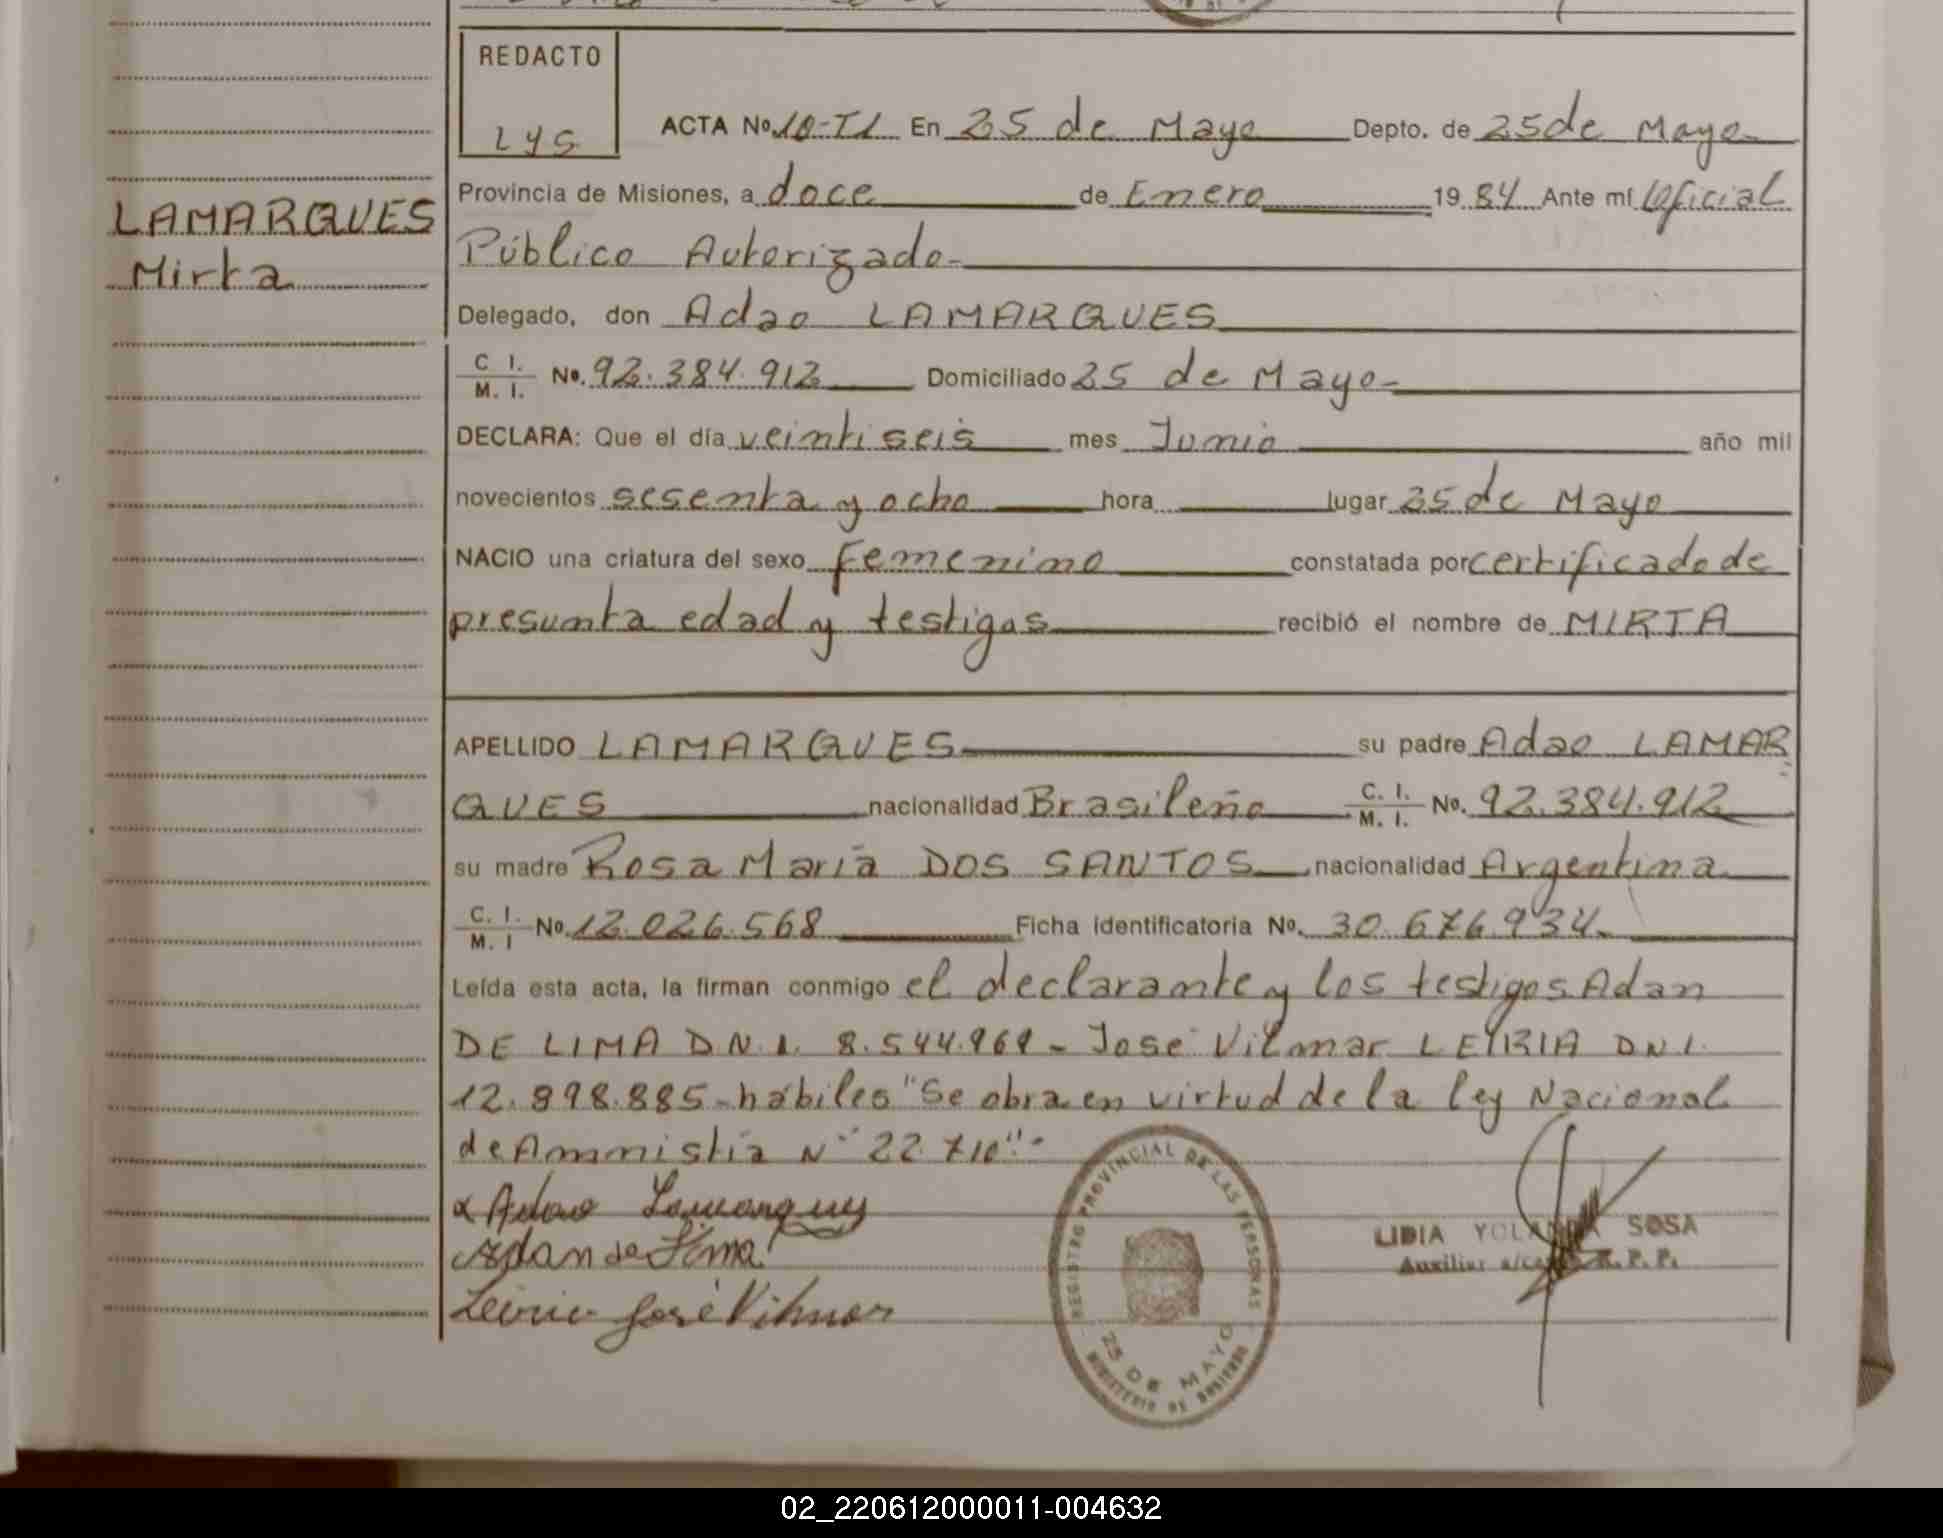 REDACTO
LYS
ACTA No. 10-T1 En 25 de Mayo Depto. de 25 de Mayo
Provincia de Misiones, a doce de Enero 1984 Ante mí Oficial
Público Autorizado-
Delegado, don Adao LAMARQUES
C. I. / M. I. No. 92.384.912 Domiciliado 25 de Mayo-
DECLARA: Que el día veintiseis mes Junio año mil
novecientos sesenta y ocho hora lugar 25 de Mayo
NACIO una criatura del sexo femenino constatada por certificado de
presunta edad y testigos recibió el nombre de MIRTA
LAMARQUES
Mirta
APELLIDO LAMARQUES su padre Adao LAMAR
QUES nacionalidad Brasileño C. I. / M. I. No. 92.384.912
su madre Rosa María DOS SANTOS nacionalidad Argentina
C. I. / M. I No. 12.026.568 Ficha identificatoria No. 30.676.934
Leída esta acta, la firman conmigo el declarante y los testigos Adan
DE LIMA D.N.I. 8.544.969 - José Vilmar LEIRIA D.N.I.
12.898.885 - hábiles "Se obra en virtud de la ley Nacional
de Amnistía N° 22.710"-
x Adao Lamarques
Adan de Lima
Leiria José Vilmar
REGISTRO PROVINCIAL DE LAS PERSONAS
25 DE MAYO
MINISTERIO DE GOBIERNO
LIDIA YOLANDA SOSA
Auxiliar a/cargo R. P. P.
02_220612000011-004632